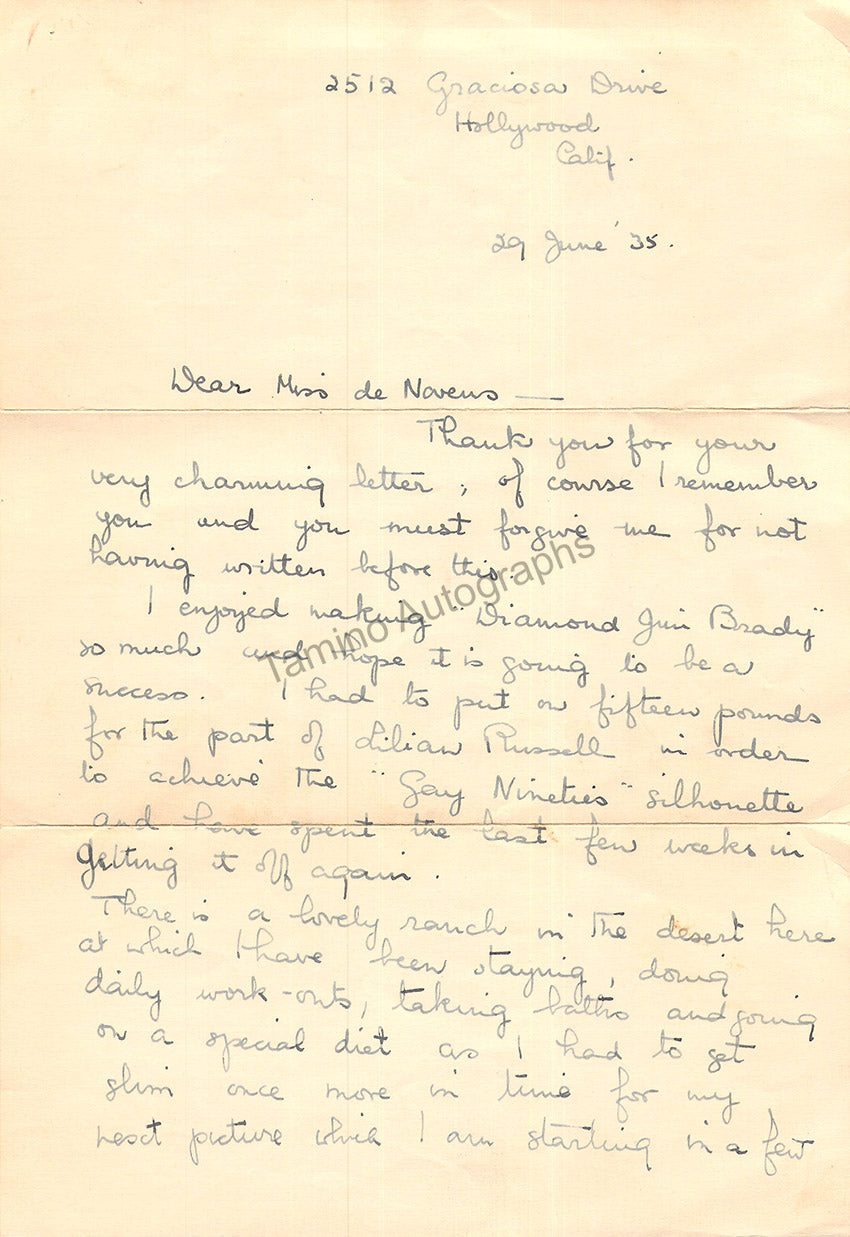 2512 Graciosa Drive
Hollywood
Calif.
29 June '35.
Dear Miss de Novens —
Thank you for your
very charming letter; of course I remember
you and you must forgive me for not
having written before this.
I enjoyed making "Diamond Jim Brady"
so much and hope it is going to be a
success. I had to put on fifteen pounds
for the part of Lilian Russell in order
to achieve the "Gay Nineties" silhouette
and have spent the last few weeks in
getting it off again.
There is a lovely ranch in the desert here
at which I have been staying, doing
daily work-outs, taking baths and going
on a special diet as I had to get
slim once more in time for my
next picture which I am starting in a few
Tamino Autographs